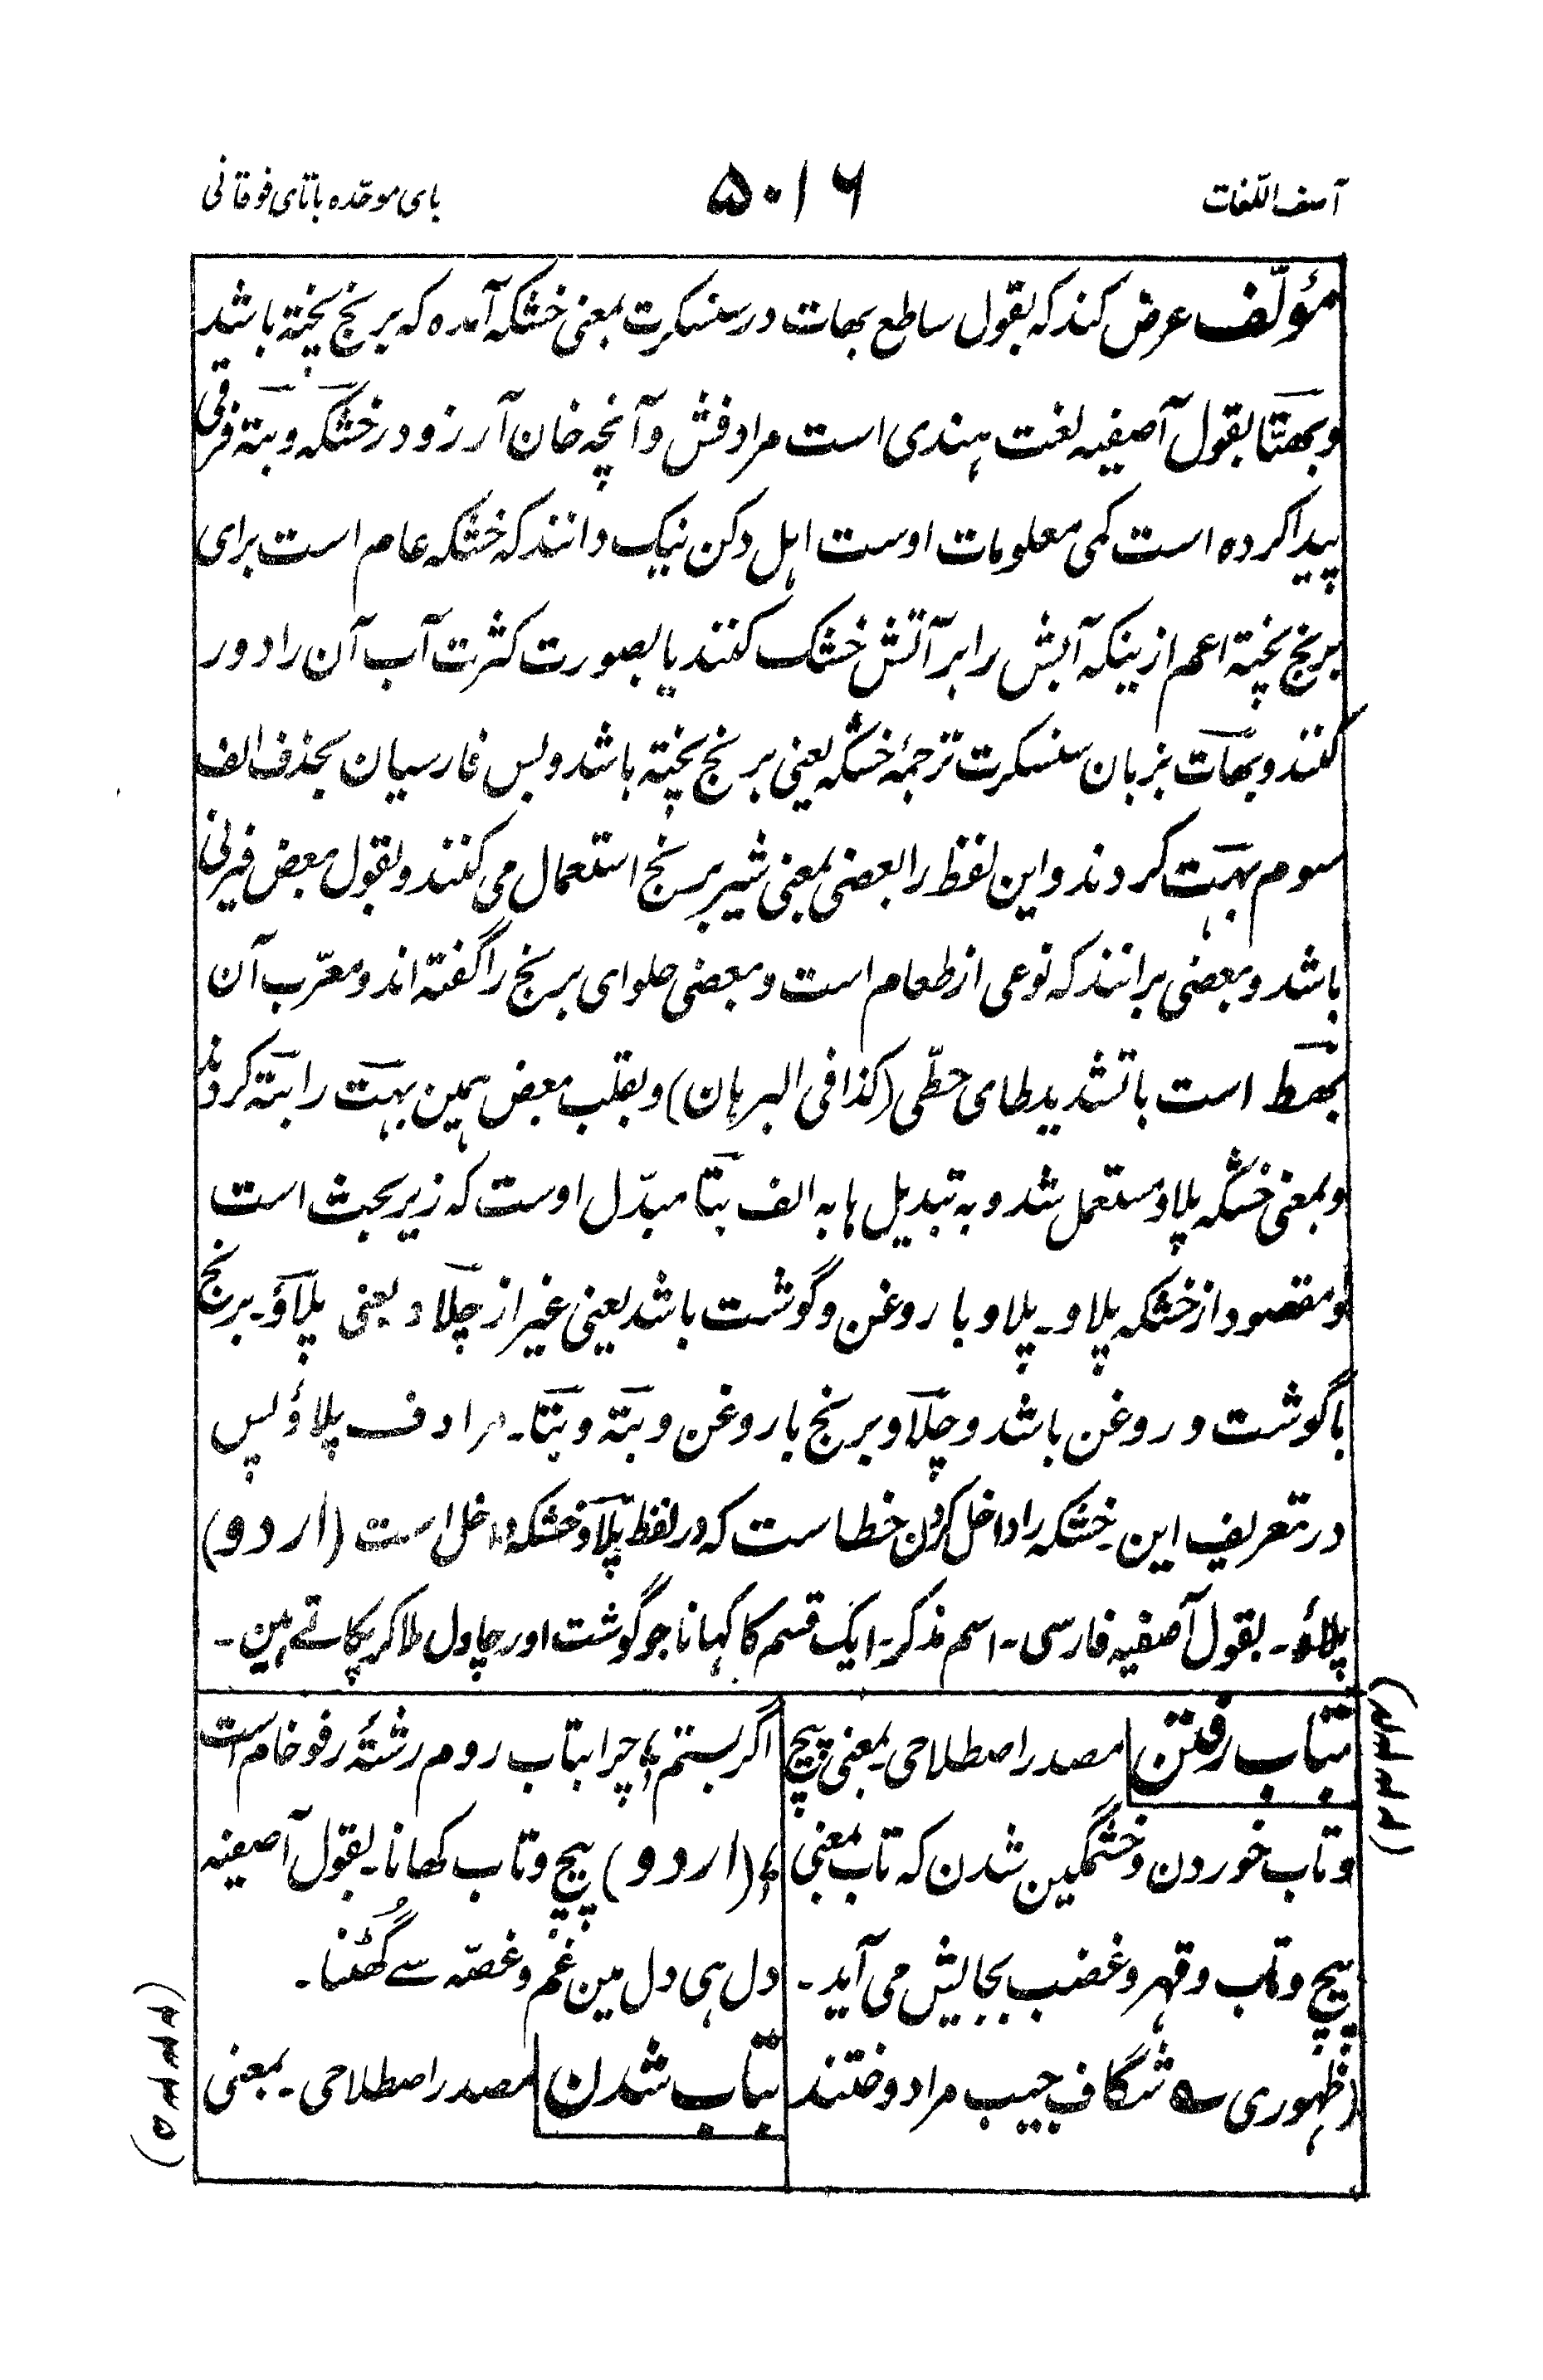 آصف اللّغات
۵۰۱۶
بای موحّده باتای فوقانی
مؤلّف عرض کند که بقول ساطع بهات در سنسکرت بمعنی خشکه آمده که برنج پخته باشد
و بهتّا بقول آصفیه لغت هندی است مرادفش و آنچه خان آرزو در خشکه و بته فرقی
پیدا کرده است کمی معلومات اوست اهل دکن نیک دانند که خشکه عام است برای
برنج پخته اعم ازینکه آبش را بر آتش خشک کنند یا بصورت کثرت آب آن را دور
کنند و بهات بزبان سنسکرت ترجمۂ خشکه یعنی برنج پخته باشد و بس فارسیان بحذف الف
سوم بهت کردند و این لفظ را بعضی بمعنی شیر برنج استعمال می کنند و بقول بعض فیرنی
باشد و بعضی برانند که نوعی از طعام است و بعضی حلوای برنج را گفته اند و معرّب آن
بهط است باتشدید طای حطّی (کذا فی البرهان) و بقلب بعض همین بهت را بته کردند
و بمعنی خشکه پلاو مستعمل شد و به تبدیل ها به الف بتا مبدّل اوست که زیر بحث است
و مقصود از خشکه پلاو۔ پلاو با روغن و گوشت باشد یعنی غیر از چلاو یعنی پلاؤ۔ برنج
با گوشت و روغن باشد و چلاو برنج با روغن و بته و بتا۔ مرادف پلاؤ پس
در تعریف این۔ خشکه را داخل کردن خطاست که در لفظ پلاو خشکه داخل است (اردو)
پلاؤ۔ بقول آصفیه فارسی۔ اسم مذکر۔ ایک قسم کا کهانا جو گوشت اور چاول ملاکر پکاتے ہین۔
بتاب رفتن مصدر اصطلاحی۔ بمعنی پیچ
و تاب خوردن و خشمگین شدن که تاب بمعنی
پیچ و تاب و قهر و غضب بجالیش می آید۔
(ظهوری ؎ شگاف جیب مرا دوختند
اگر بستم ؛ چرا بتاب روم رشتۂ رفو خام است
؛ (اردو) پیچ و تاب کهانا۔ بقول آصفیه
دل ہی دل مین غم و غصّہ سے گُھٹنا۔
بتاب شدن مصدر اصطلاحی۔ بمعنی